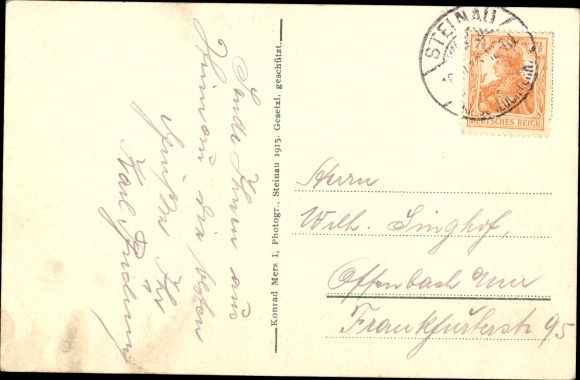 Sende Ihnen aus
Steinau die besten
Grüße Ihr
Karl
Konrad Merz I, Photogr., Steinau 1915. Gesetzl. geschützt.
STEINAU
DEUTSCHES REICH
Herrn
Wilh. Singhof,
Offenbach
Frankfurterstr 95